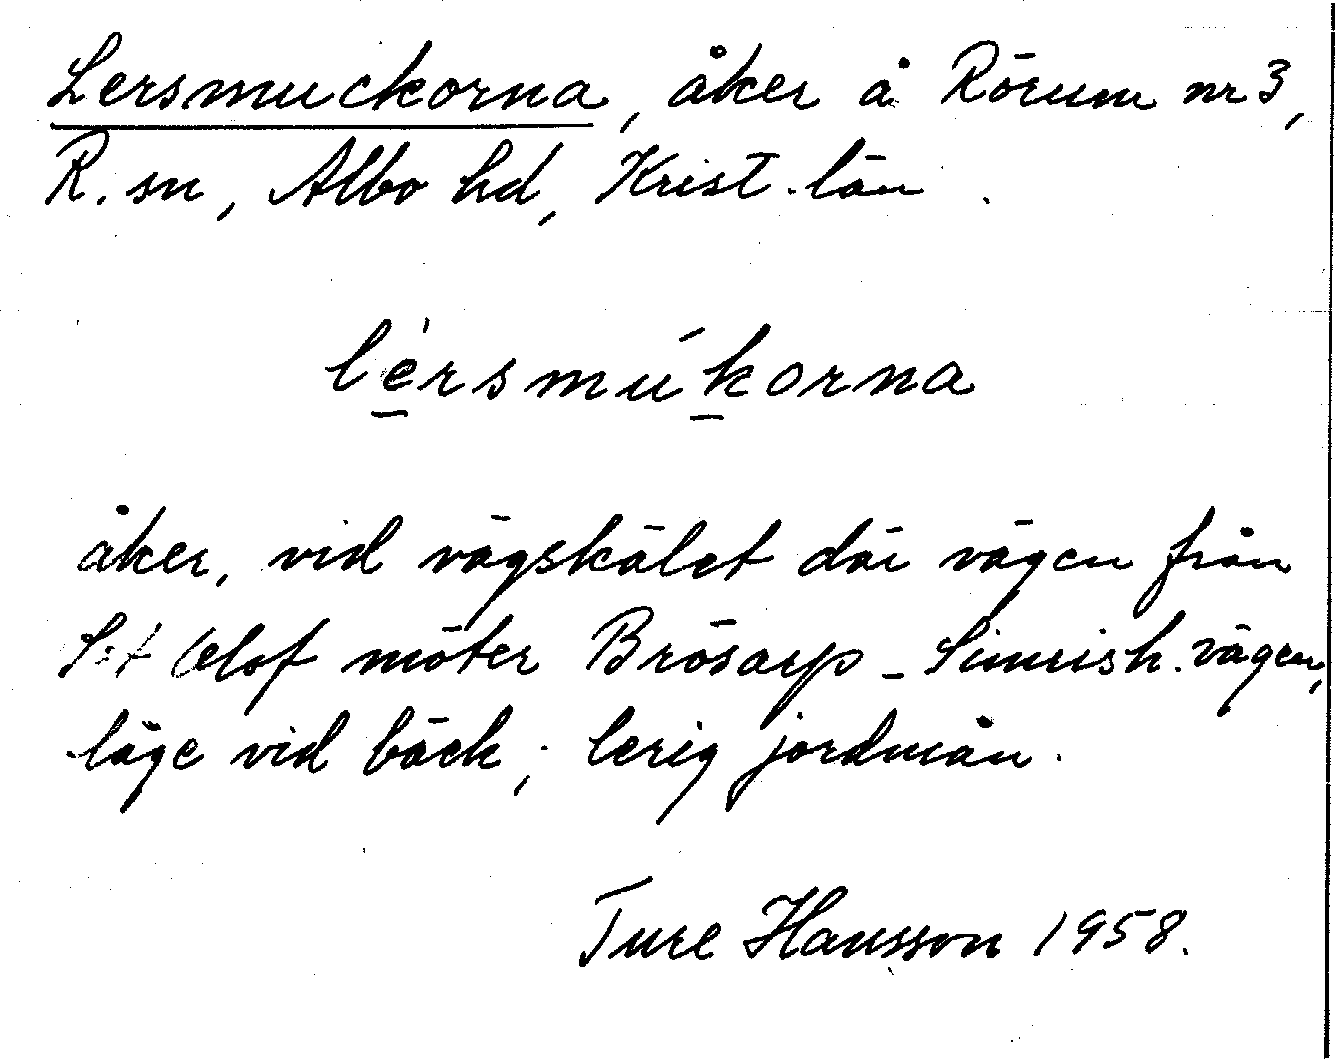 Lersmuckorna, åker å Rörum nr 3,
R. sn, Albo hd, Krist. län.
lèrsmúkorna
åker, vid vägskälet där vägen från
S:t Olof möter Brösarp - Simrish. vägen,
läge vid bäck; lerig jordmån.
Ture Hansson 1958.